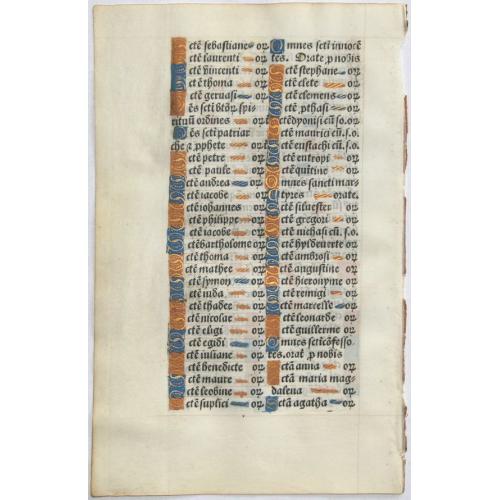 Sctē sebastiane or
Sctē laurenti or
Sctē vincenti or
Sctē thoma or
Sctē geruasi or
Oēs scti btōꝝ spi
rituū ordines or
Oēs scti patriar
che ⁊ ꝓphete or
Sctē petre or
Sctē paule or
Sctē andrea or
Sctē iacobe or
Sctē iohannes or
Sctē philippe or
Sctē iacobe or
Sctē bartholome or
Sctē thoma or
Sctē mathee or
Sctē symon or
Sctē iuda or
Sctē thadee or
Sctē nicolae or
Sctē eligi or
Sctē egidi or
Sctē iuliane or
Sctē benedicte or
Sctē maure or
Sctē leobine or
Sctē suplici or
Omnes scti innocē
tes. Orate ꝓ nobis
Sctē stephane or
Sctē clete or
Sctē clemens or
Sctē
Sctē dyonisi cū.s.o.
Sctē maurici cū.s.o.
Sctē eustachi cū.s.o.
Sctē eutropi or
Sctē quītine or
Omnes sancti mar-
tyres orate.
Sctē siluester or
Sctē gregori or
Sctē nichasi cū.s.o.
Sctē
Sctē ambrosi or
Sctē augustine or
Sctē hieronyme or
Sctē remigi or
Sctē marcelle or
Sctē leonarde or
Sctē guillerme or
Omnes scti cōfesso
res. orat ꝓ nobis
Sctā anna or
Sctā maria mag-
dalena or
Sctā agatha or